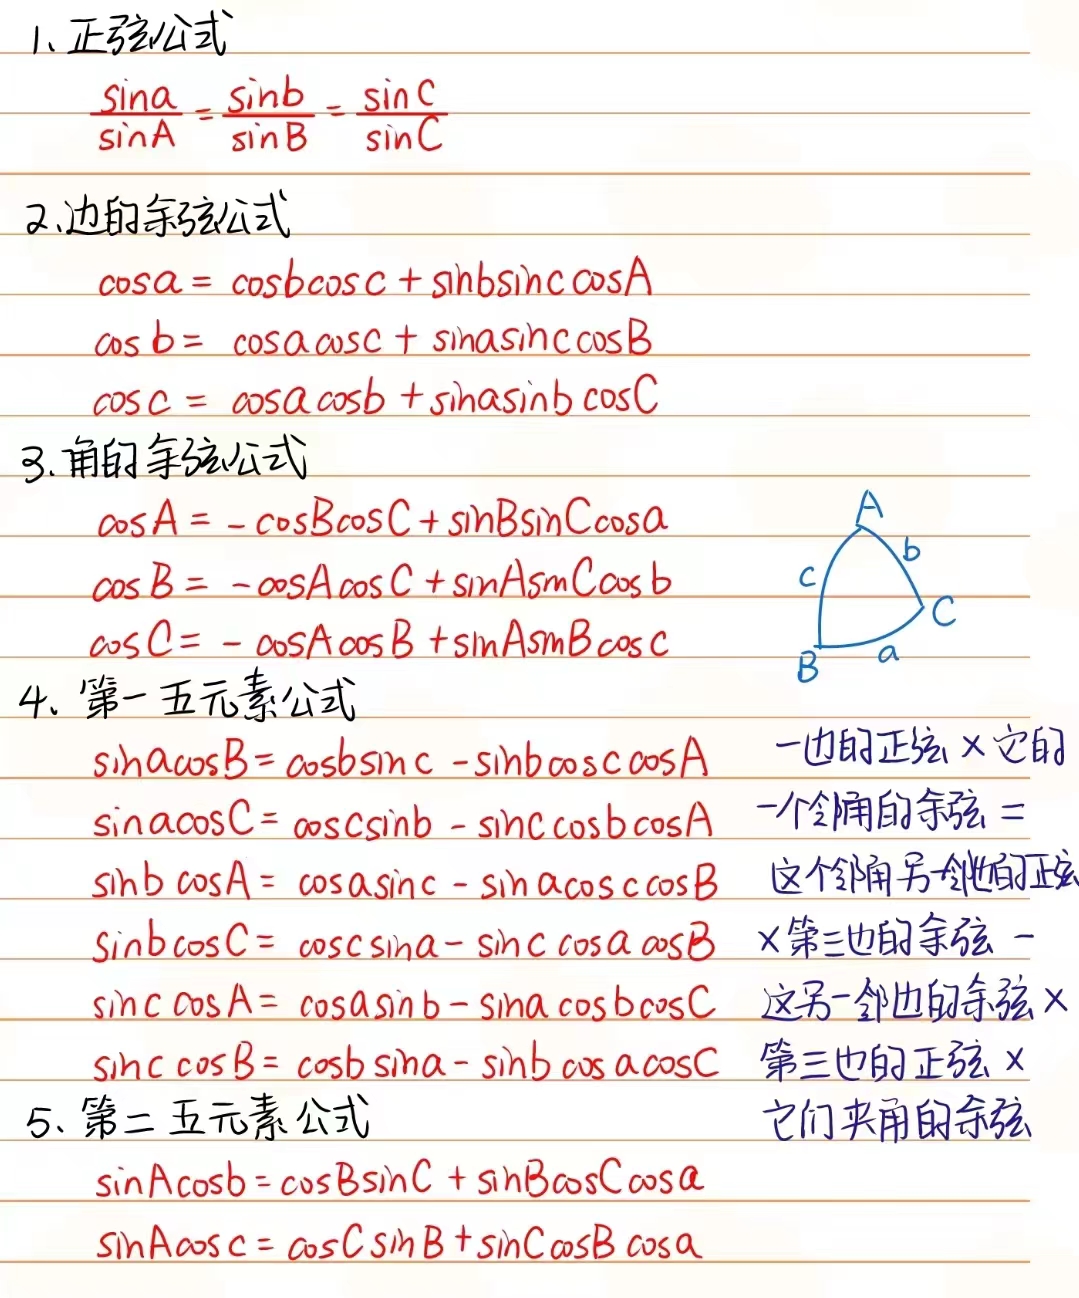 1、正弦公式
sina/sinA = sinb/sinB = sinC/sinC
2、边的余弦公式
cosa = cosbcosc + sinbsinccosA
cosb = cosacosc + sinasinccosB
cosc = cosacosb + sinasinbcosC
3、角的余弦公式
cosA = -cosBcosC + sinBsinCcosa
cosB = -cosAcosC + sinAsinCcosb
cosC = -cosAcosB + sinAsinBcosc
A
b
c
C
a
B
4、第一五元素公式
sinacosB = cosbsinc - sinbcosccosA
一边的正弦×它的
sinacosC = coscsinb - sinccosbcosA
一个邻角的余弦=
sinbcosA = cosasinc - sinacosccosB
这个邻角另一邻边的正弦
sinbcosC = coscsina - sinccosacosB
×第三边的余弦-
sinccosA = cosasinb - sinacosbcosC
这另一邻边的余弦×
sinccosB = cosbsina - sinbcosacosC
第三边的正弦×
5、第二五元素公式
它们夹角的余弦
sinAcosb = cosBsinC + sinBcosCcosa
sinAcosc = cosCsinB + sinCcosBcosa